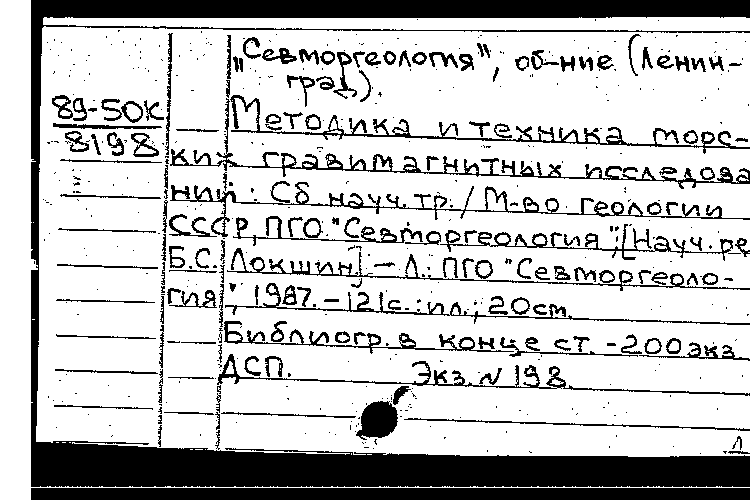 "Севморгеология", об-ние (Ленин-
град).
89-50К
8198
Методика и техника морс-
ких гравимагнитных исследова
ний: Сб науч. тр. / М-во геологии
СССР, ПГО "Севморгеология"; [Науч. ре
Б.С. Локшин] - Л.: ПГО "Севморгеоло-
гия", 1987. - 121с.: ил.; 20см.
Библиогр. в конце ст. - 200 экз
ДСП. Экз. N 198
Д